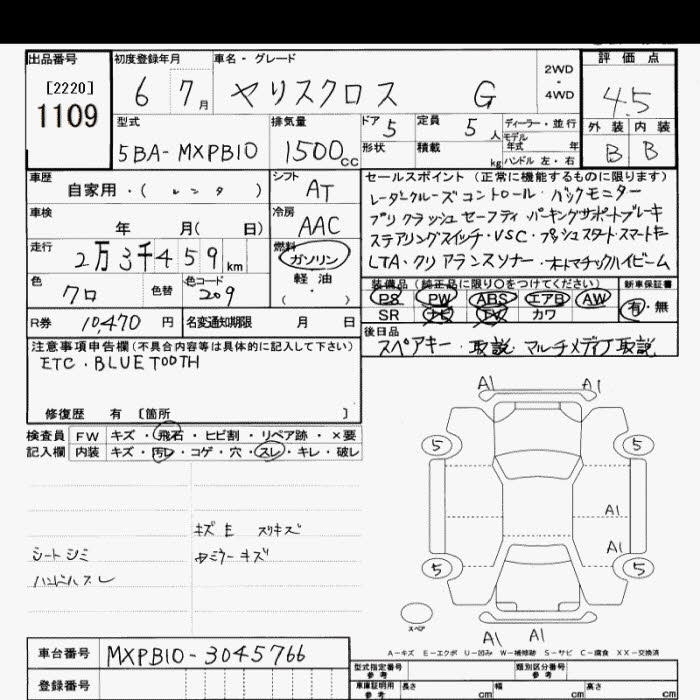 出品番号
[2220]
1109
初度登録年月
6 7 月
車名・グレード
ヤリスクロス G
2WD
・
4WD
評価点
4.5
外装 内装
B B
型式
5BA-MXPB10
排気量
1500cc
ドア
5
定員
5 人
形状
積載
kg
ディーラー・並行
モデル
年式 年
ハンドル 左・右
車歴
自家用・( レンタ )
シフト
AT
車検
年 月( 日)
冷房
AAC
走行
2万3千459km
燃料
ガソリン
軽・油
( ・ )
色
クロ
色替
色コード
209
R券
10,470 円
名変通知期限 月 日
セールスポイント (正常に機能するものに限ります)
レーダークルーズコントロール・バックモニター
プリクラッシュセーフティ パーキングサポートブレーキ
ステアリングスイッチ・VSC・プッシュスタート・スマートキー
LTA・クリアランスソナー・オートマチックハイビーム
装備品(純正品に限り○をつけてください)
PS PW ABS エアB AW
SR ナビ TV カワ
新車保証書
有・無
後日品
スペアキー・取説 マルチメディア取説
注意事項申告欄(不具合内容等は具体的に記入して下さい)
ETC・BLUETOOTH
修復歴 有 〔箇所 〕
検査員
記入欄
FW キズ・飛石・ヒビ割・リペア跡・×要
内装 キズ・汚レ・コゲ・穴・スレ・キレ・破レ
シートシミ
ハンドルスレ
キズ E スリキズ
ミラーキズ
A1 A1
5 5
A1
A1
5 5
スペア
A1 A1
A-キズ E-エクボ U-凹み W-補修跡 S-サビ C-腐食 XX-交換済
車台番号
MXPB10-3045766
登録番号
型式指定番号
参考
類別区分番号
参考
車庫証明用
参考
長さ cm 幅 cm 高さ cm